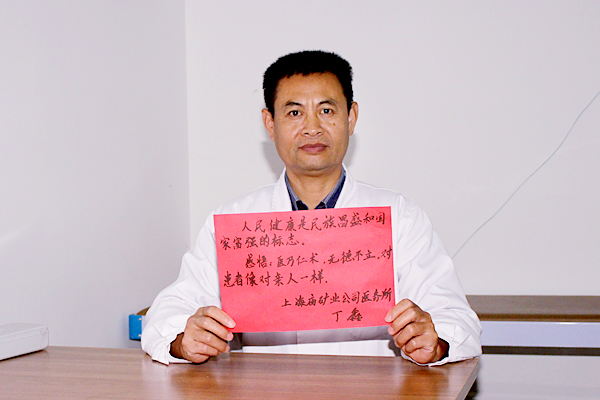 人民健康是民族昌盛和国
家富强的标志。
感悟：医乃仁术，无德不立，对
患者像对亲人一样。
上海庙矿业公司医务所
丁鑫